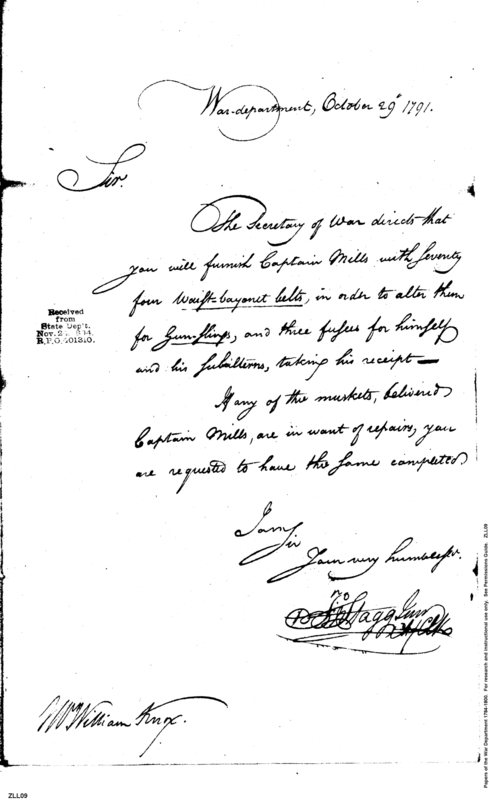 War-department, October 29th 1791.
Sir.
The Secretary of War directs that
you will furnish Captain Mills with Seventy
four Waist-bayonet belts, in order to alter them
for Gun-slings, and three fusees for himself
and his Subalterns, taking his receipt—
If any of the muskets, delivered
Captain Mills, are in want of repairs, you
are requested to have the same completed
Received
from
State Dep't.
Nov. 2
R.P.O. 401310.
I am
Sir
Your very humble
Jno Stagg Junr
Mr William Knox.
ZLL09
Papers of the War Department 1784-1800. For research and instructional use only. See Permissions Guide. ZLL09